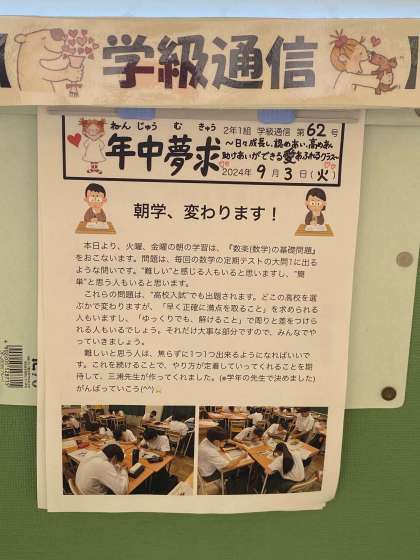 【学級通信】
ねんじゅうむきゅう
年中夢求
2年1組 学級通信 第62号
～日々成長し、認めあい、高めあい
助けあいができる愛あふれるクラス～
2024年9月3日(火)
朝学、変わります！
本日より、火曜、金曜の朝の学習は、『数楽(数学)の基礎問題』
をおこないます。問題は、毎回の数学の定期テストの大問1に出る
ような問いです。"難しい"と感じる人もいると思いますし、"簡
単"と思う人もいると思います。
これらの問題は、"高校入試"でも出題されます。どこの高校を選
ぶかで変わりますが、「早く正確に満点を取ること」を求められる
人もいますし、「ゆっくりでも、解けること」で周りと差をつけら
れる人もいるでしょう。それだけ大事な部分ですので、みんなでや
っていきましょう。
難しいと思う人は、焦らずに1つ1つ出来るようになればいいで
す。これを続けることで、やり方が定着していってくれることを期
待して、三浦先生が作ってくれました。(※学年の先生で決めました)
がんばっていこう(^^)☆